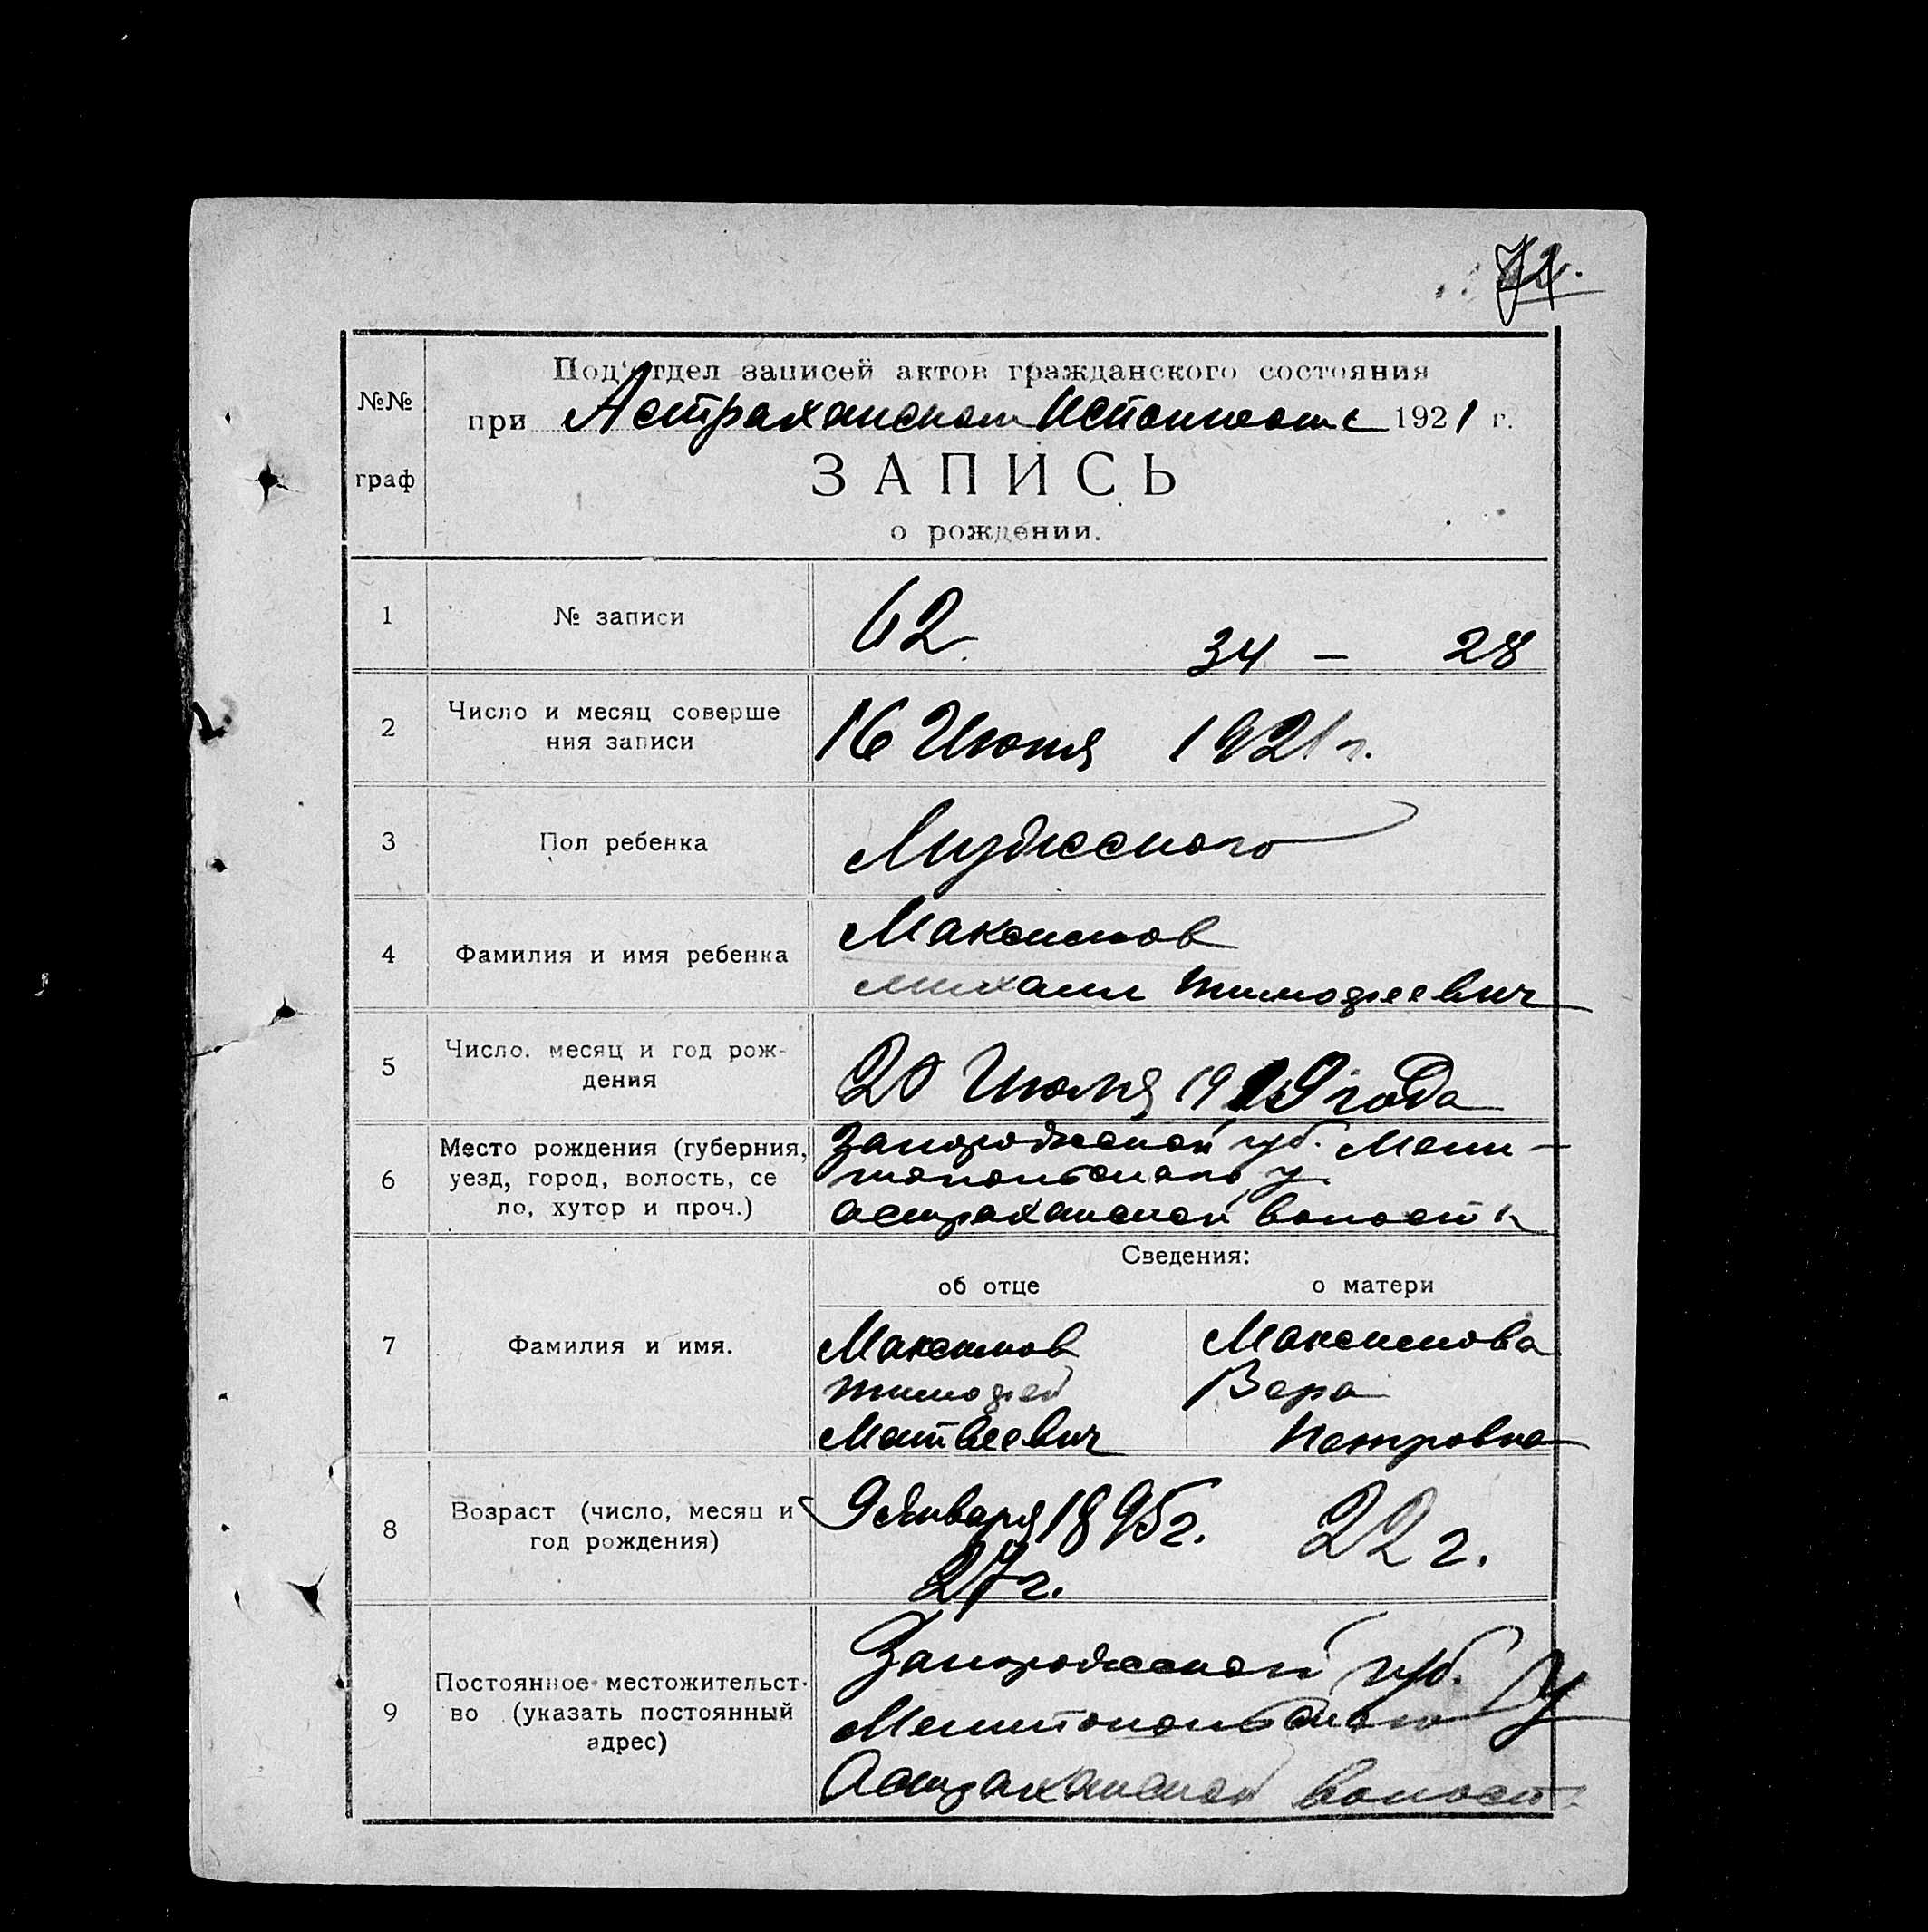 72.
№№
граф
Под'отдел записей актов гражданского состояния
при Астраханском Исполкоме 1921 г.
ЗАПИСЬ
о рождении.
1 № записи 62. 34 — 28
2 Число и месяц соверше
ния записи 16 Июня 1921 г.
3 Пол ребенка Мужеского
4 Фамилия и имя ребенка Максимов
Михаил Тимофеевич
5 Число. месяц и год рож-
дения 20 Июля 1919 года
6 Место рождения (губерния,
уезд, город, волость, се
ло, хутор и проч.) Запорожской губ. Мели-
топольского у
Астраханской волости
Сведения:
об отце о матери
7 Фамилия и имя. Максимов Максимова
Тимофей Вера
Матвеевич Петровна
8 Возраст (число, месяц и
год рождения) 9 Января 1895 г. 22 г.
27 г.
9 Постоянное местожительст-
во (указать постоянный
адрес) Запорожской губ.
Мелитопольского У
Астраханской волост.